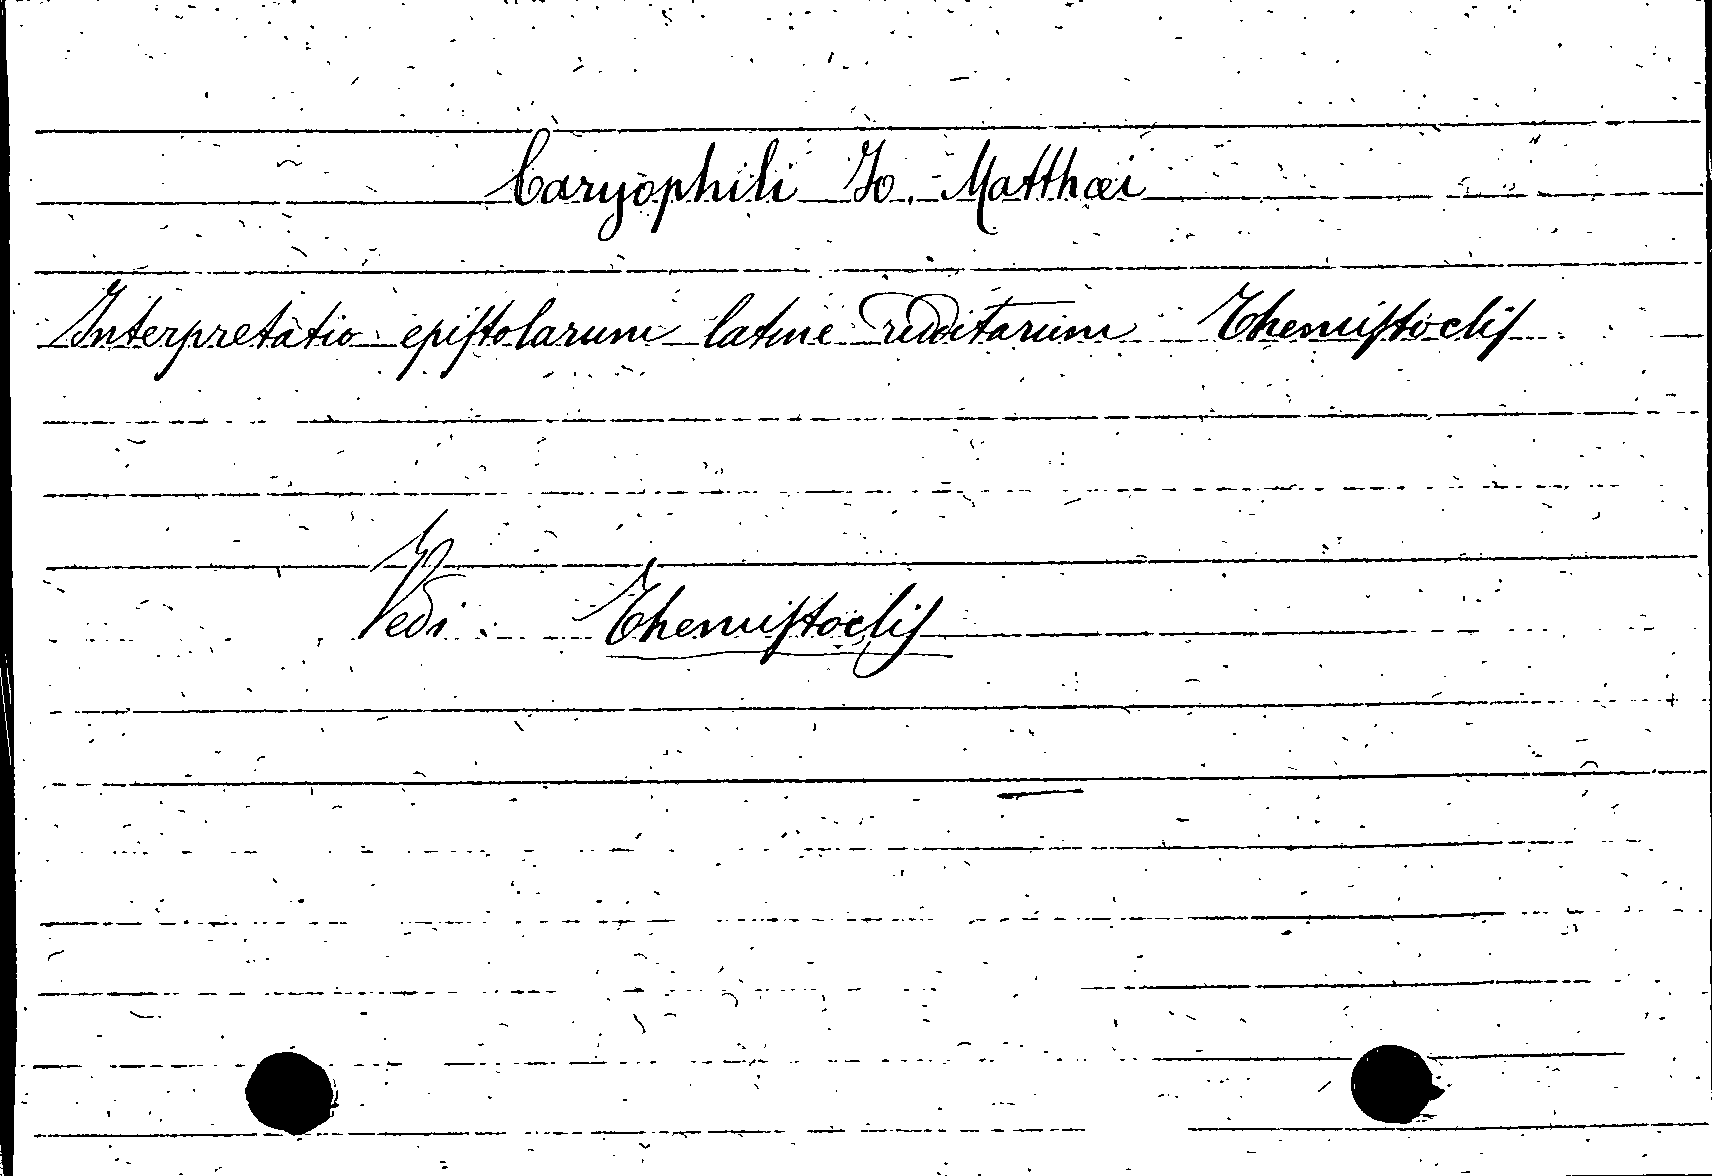 Caryophili Jo. Matthæi
Interpretatio epistolarum latine redditarum Themistoclis
Vedi: Themistoclis